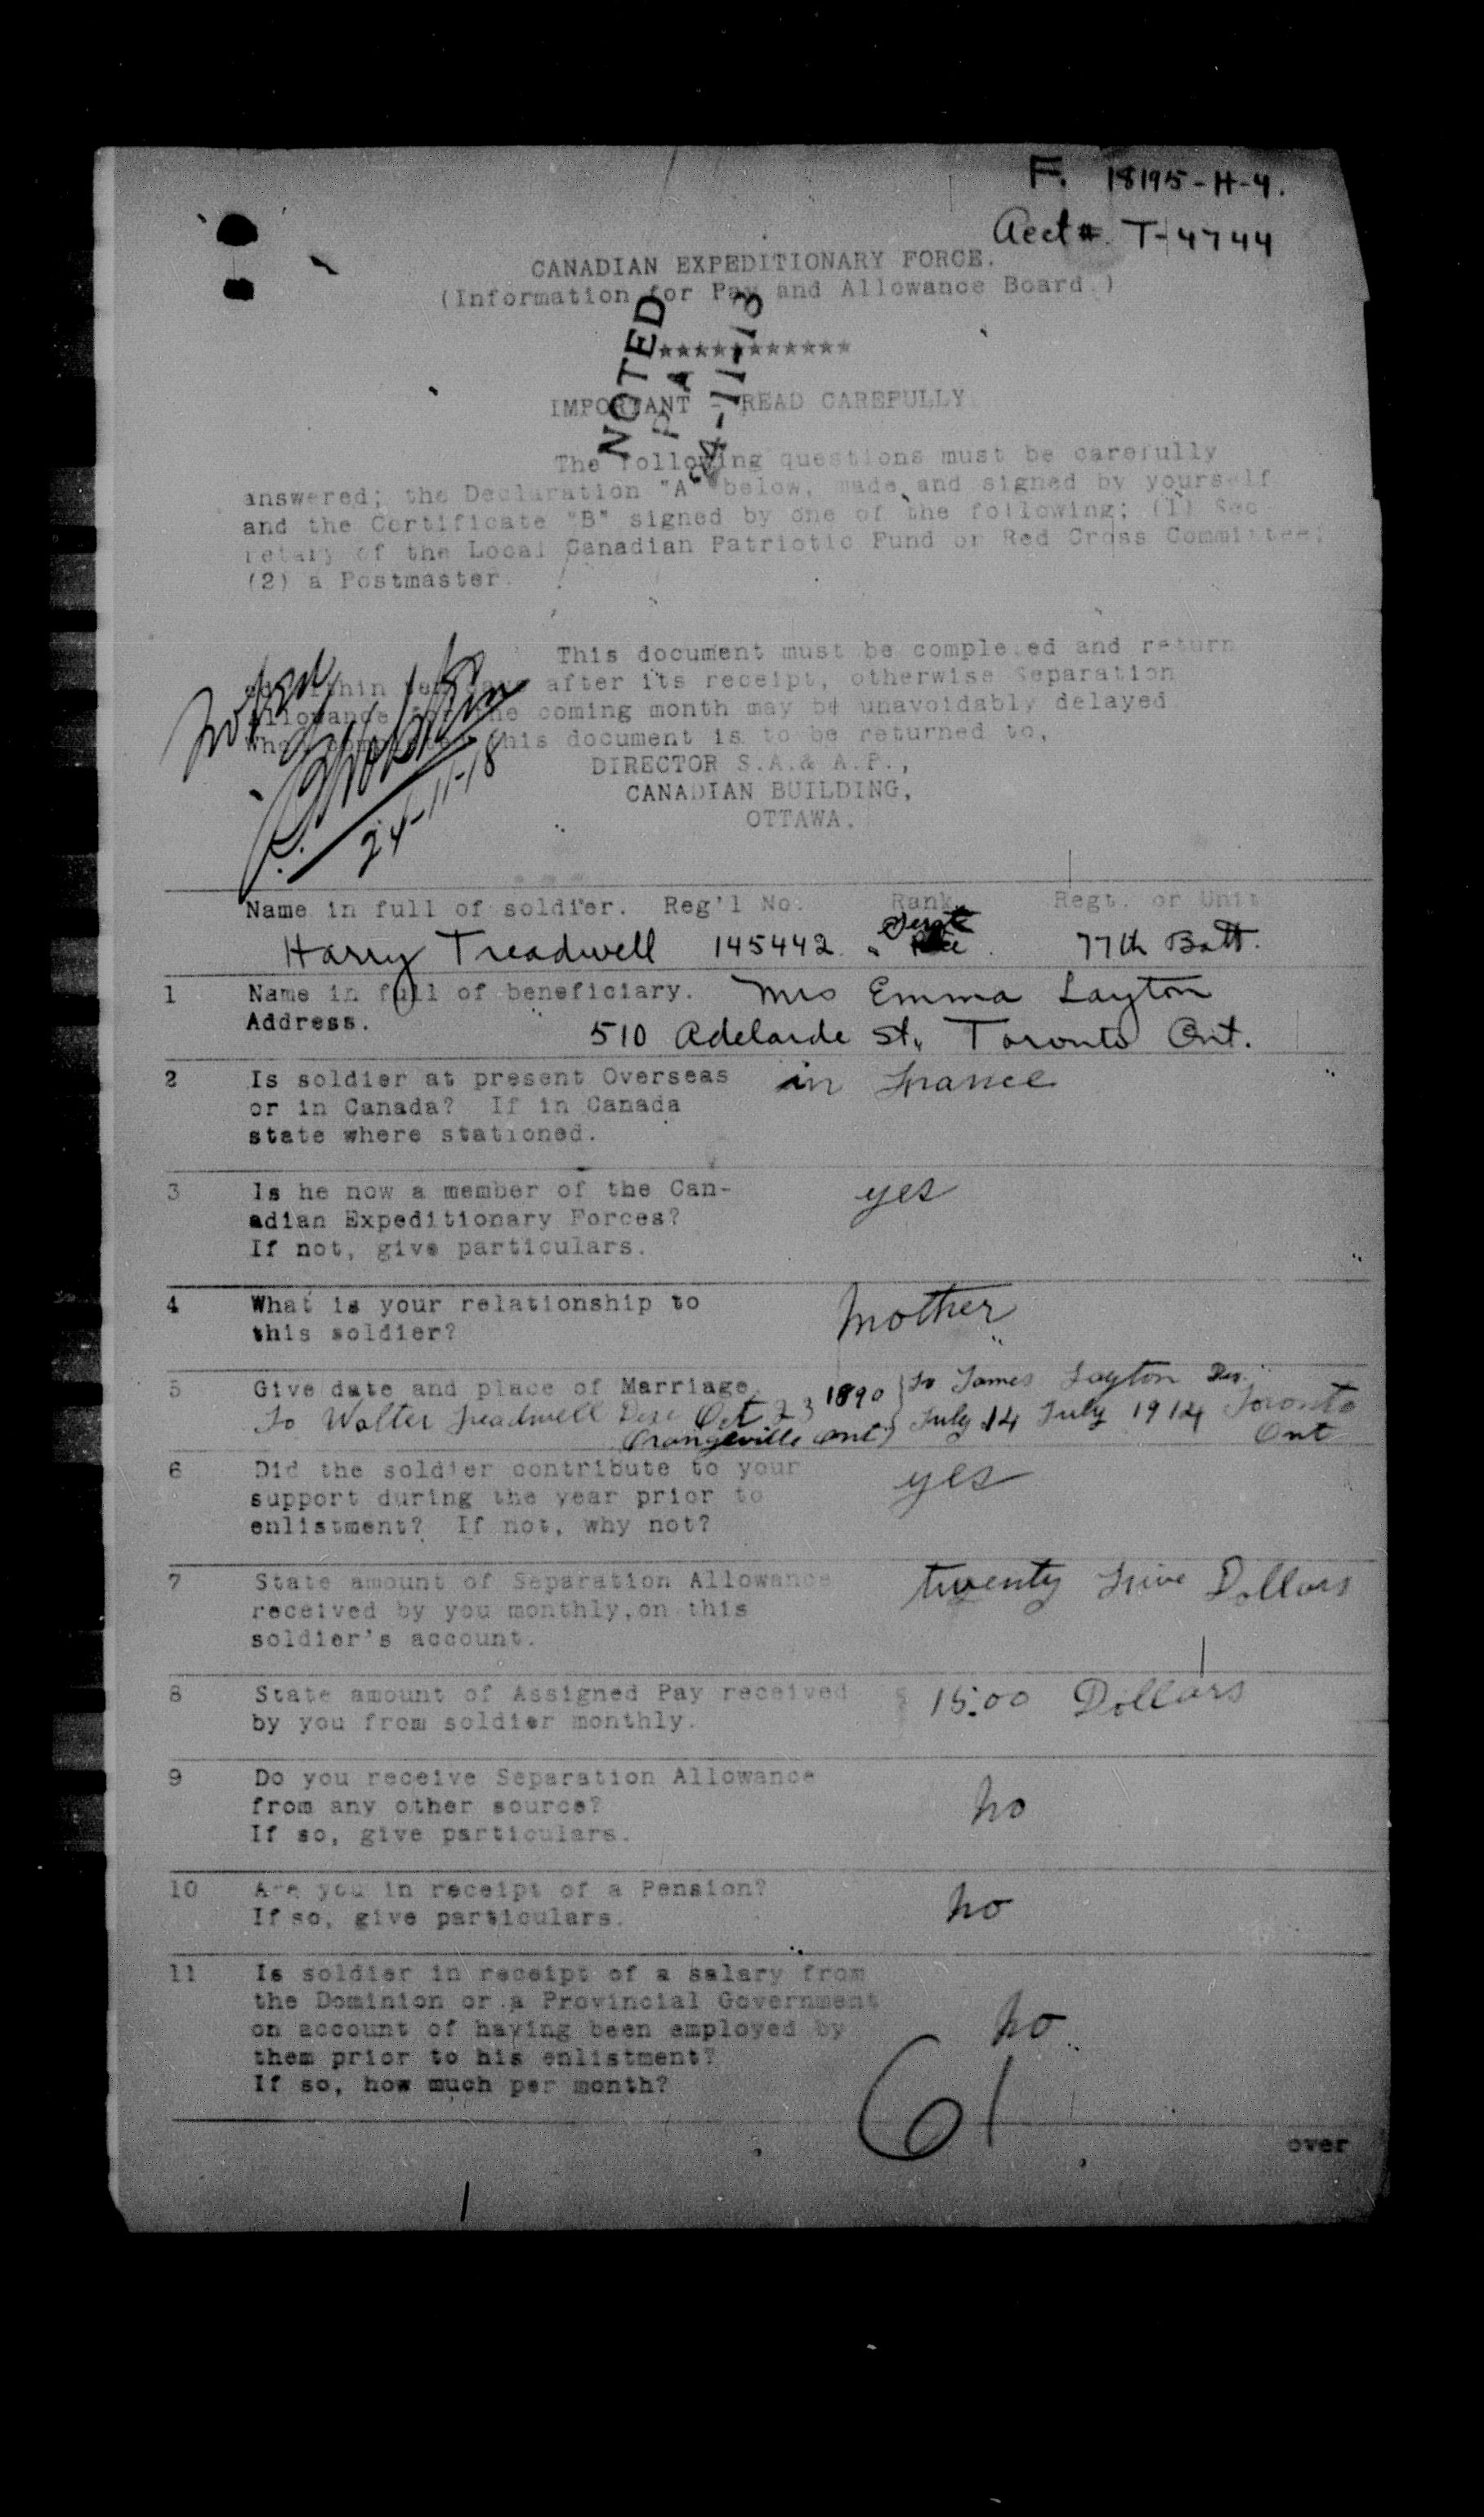 F. 18195-H-4.
Acct #. T-4744
CANADIAN EXPEDITIONARY FORCE.
(Information for Pay and Allowance Board.)
***********
NOTED
P A
IMPORTANT - READ CAREFULLY.
The following questions must be carefully
answered; the Declaration "A" below, made and signed by yourself
and the Certificate "B" signed by one of the following; (1) Sec
retary of the Local Canadian Patriotic Fund or Red Cross Committee;
(2) a Postmaster.
This document must be completed and return
within after its receipt, otherwise Separation
Allowance for the coming month may be unavoidably delayed
When this document is to be returned to,
DIRECTOR S.A.& A.P.,
CANADIAN BUILDING,
OTTAWA.
24-11-18
Name in full of soldier. Reg'l No. Rank. Regt. or Unit
Harry Treadwell 145442 77th Batt.
1 Name in full of beneficiary. Mrs Emma Layton
Address. 510 Adelaide St., Toronto Ont.
2 Is soldier at present Overseas in France
or in Canada? If in Canada
state where stationed.
3 Is he now a member of the Can- yes
adian Expeditionary Forces?
If not, give particulars.
4 What is your relationship to Mother
this soldier?
5 Give date and place of Marriage. 1890 } To James Layton Dec.
To Walter Treadwell Dec Oct 23 July 14 July 1914 Toronto
Orangeville Ont) Ont
6 Did the soldier contribute to your yes
support during the year prior to
enlistment? If not, why not?
7 State amount of Separation Allowance twenty five Dollars
received by you monthly, on this
soldier's account.
8 State amount of Assigned Pay received $ 15.00 Dollars
by you from soldier monthly.
9 Do you receive Separation Allowance no
from any other source?
If so, give particulars.
10 Are you in receipt of a Pension? no
If so, give particulars.
11 Is soldier in receipt of a salary from
the Dominion or a Provincial Government
on account of having been employed by no
them prior to his enlistment?
If so, how much per month?
61
over